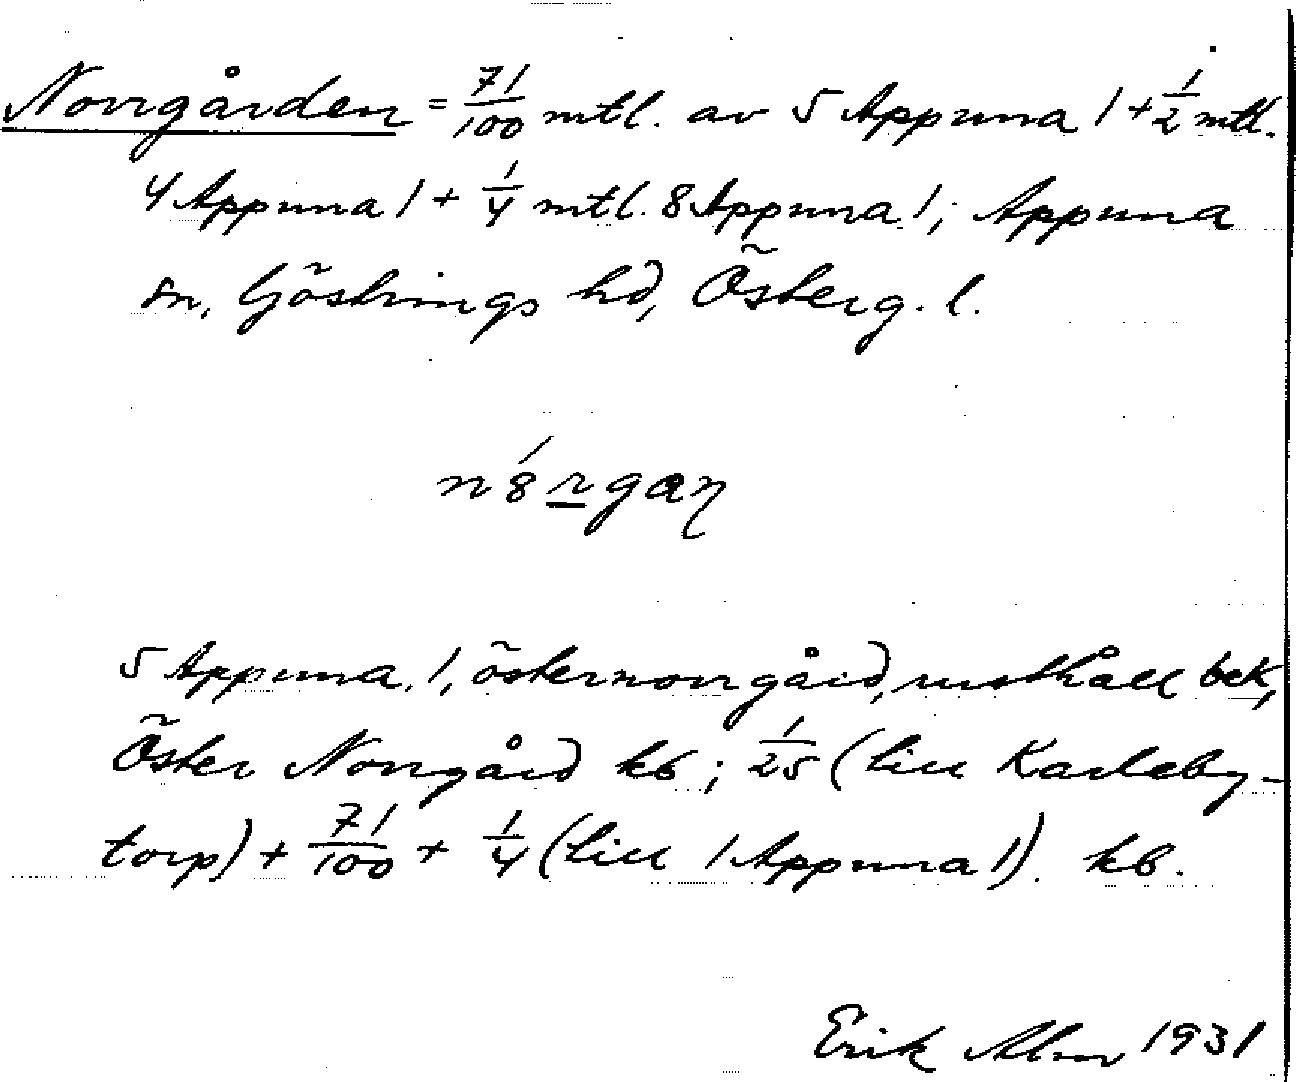 Norrgården = 71/100 mtl. av 5 Appuna 1 + 1/2 mtl.
4 Appuna 1 + 1/4 mtl. 8 Appuna 1; Appuna
sn, Göstrings hd, Österg. l.
n8́rgaη
5 Appuna 1, östernorrgård, rusthåll bek,
Öster Norrgård kb; 1/25 (till Karleby-
torp) + 71/100 + 1/4 (till 1 Appuna 1). kb.
Erik Alm 1931